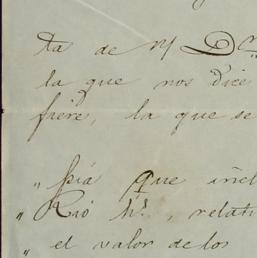 ta de
la que nos dice
freire, la que se
" que incl
" Rio Ns., relati
" el valor de los